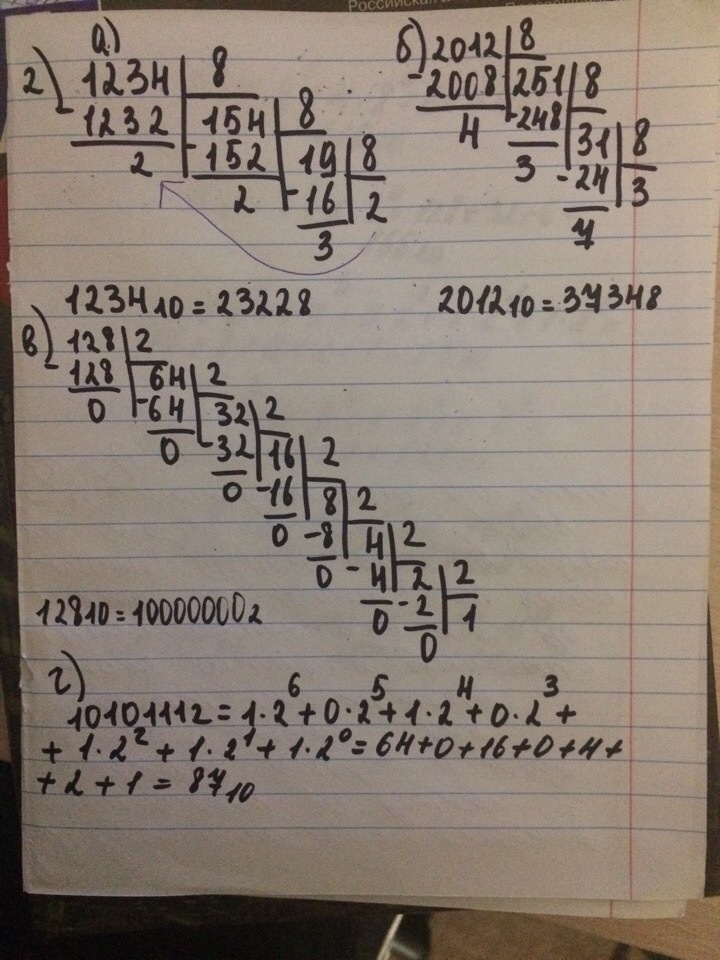 Российская
2)
а)
1234 8
- 1232 154 8
2 - 152 19 8
2 - 16 2
3
1234₁₀ = 2322₈
б) 2012 8
- 2008 251 8
4 - 248 31 8
3 - 24 3
7
2012₁₀ = 3734₈
в) 128 2
- 128 64 2
0 - 64 32 2
0 - 32 16 2
0 - 16 8 2
0 - 8 4 2
0 - 4 2 2
0 - 2 1
0
128₁₀ = 10000000₂
г)
1010111₂ = 1·2⁶ + 0·2⁵ + 1·2⁴ + 0·2³ +
+ 1·2² + 1·2¹ + 1·2⁰ = 64 + 0 + 16 + 0 + 4 +
+ 2 + 1 = 87₁₀